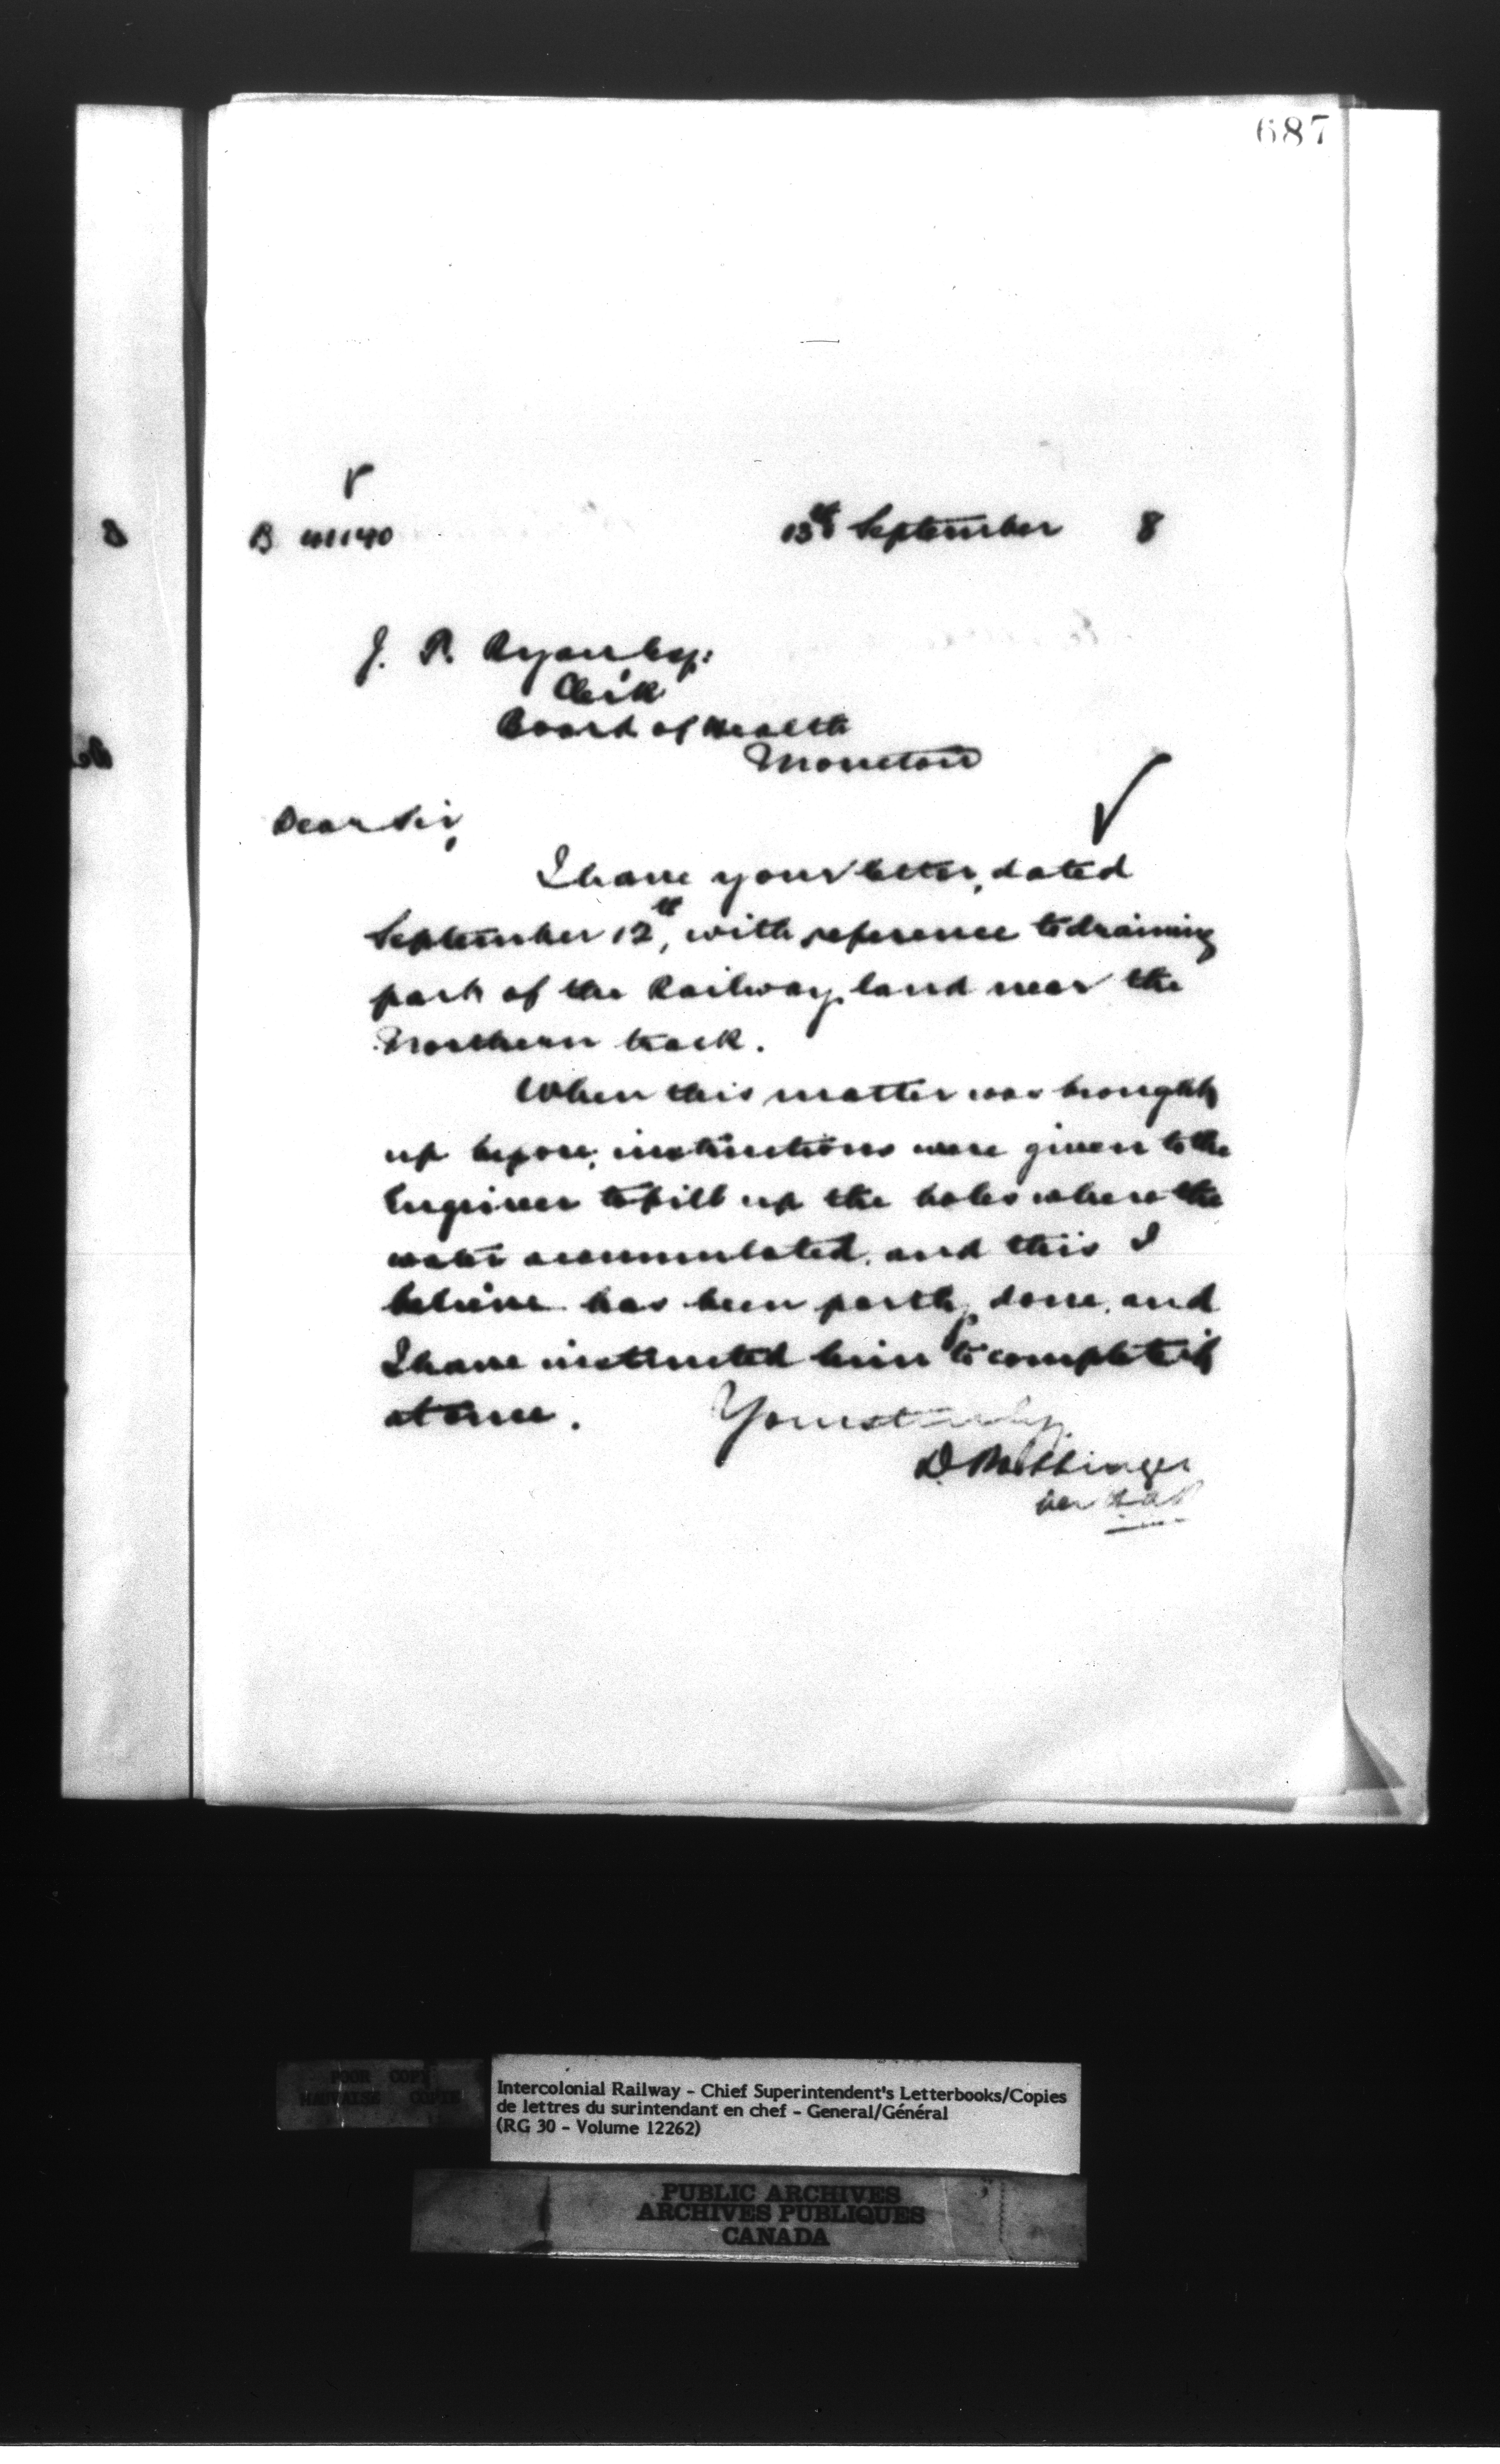 687
B 41140 13th September 8
J. R. Ryan Esq:
Clerk
Board of Health
Moncton
Dear Sir,
I have your letter, dated
September 12th, with reference to draining
part of the Railway land near the
Northern track.
When this matter was brought
up before, instructions were given to the
Engineer to fill up the holes where the
water accumulated, and this I
believe has been partly done, and
I have instructed him to complete it
at once. Yours truly
D Pottinger
per
POOR COPY
MAUVAISE COPIE
Intercolonial Railway - Chief Superintendent's Letterbooks/Copies
de lettres du surintendant en chef - General/Général
(RG 30 - Volume 12262)
PUBLIC ARCHIVES
ARCHIVES PUBLIQUES
CANADA